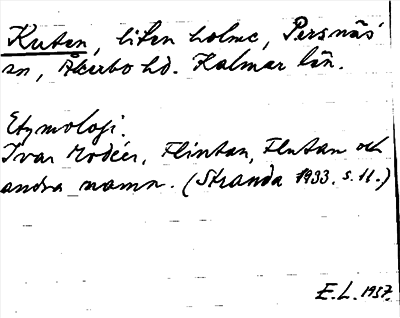 Kuten, liten holme, Persnäs
sn, Åkerbo hd. Kalmar län.
Etymologi:
Ivar Modéer, Flintan, Flutan och
andra namn. (Stranda 1933. s. 11.)
E.L. 1937.